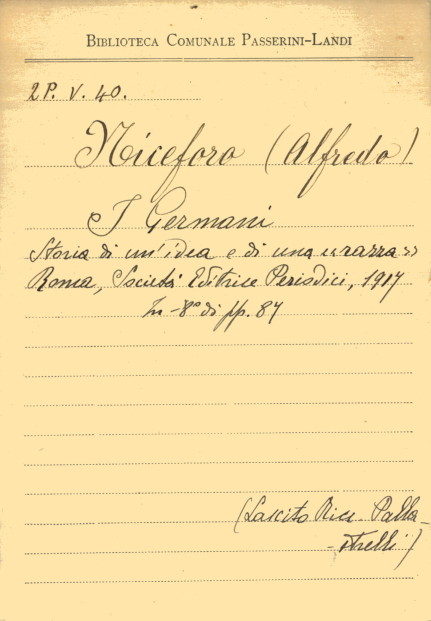 BIBLIOTECA COMUNALE PASSERINI-LANDI
2P. V. 40.
Niceforo (Alfredo)
I Germani
Storia di un'idea e di una «razza»
Roma, Società Editrice Periodici, 1917
In-8° di pp. 87
(Lascito Ricc. Palla-
-strelli)